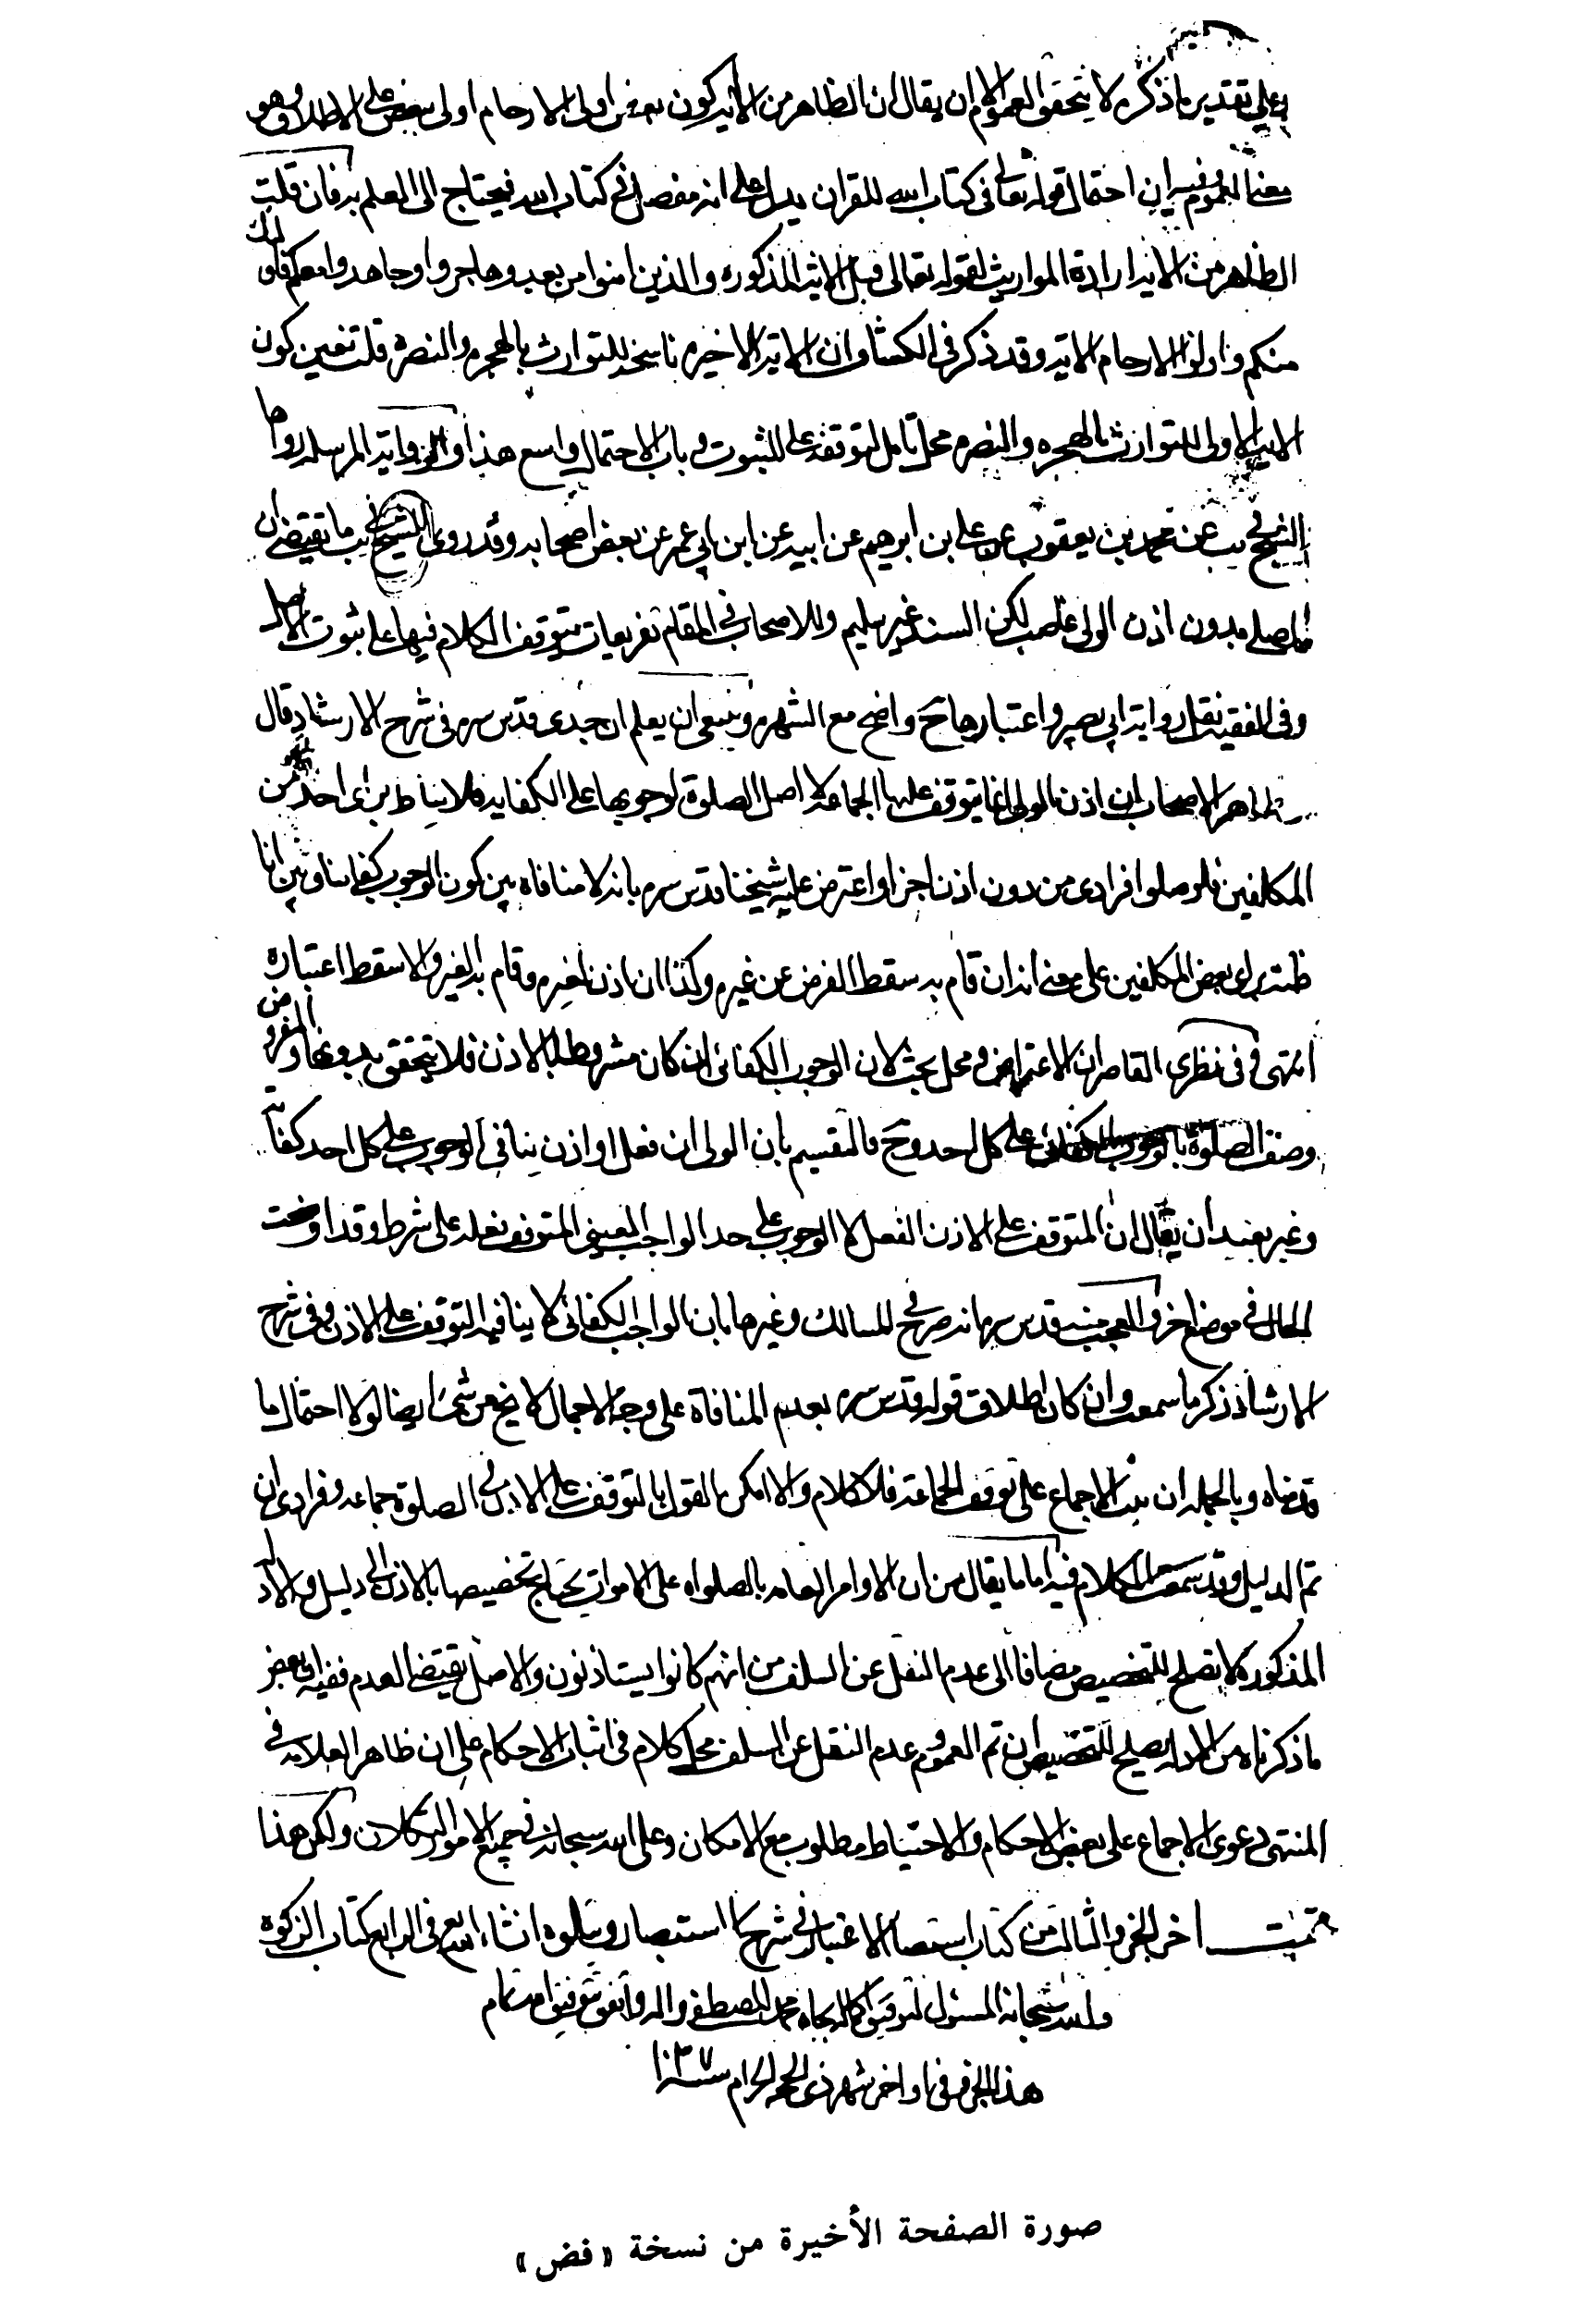 وعلى تقدير ما ذكره لا يتحقق العموم الا ان يقال ان الظاهر من الآية كون بعض اولى الارحام اولى ببعض على الاطلاق وهو
معنى العموم وفيه ان احتمال قوله تعالى فى كتاب الله للقران يدل على انه مفصل فى كتاب الله فيحتاج الى العلم به فان قلت
الظاهر من الاية ارادة المواريث لقوله تعالى قبل الاية المذكوره والذين امنوا من بعد وهاجروا وجاهدوا معكم فاولئك
منكم واولوا الارحام الاية وقد ذكر فى الكشاف ان الاية الاخيرة ناسخة للتوارث بالهجرة والنصرة قلت تعين كون
الاية الاولى للتوارث بالهجره والنصره محل تامل لتوقفه على الثبوت وباب الاحتمال واسع هذا والرواية المرسله رواها
الشيخ فى يب عن محمد بن يعقوب عن على بن ابرهيم عن ابيه عن ابن ابى عمير عن بعض اصحابه وقد روى الشيخ فى يب ما يقتضى ان
المصلى بدون اذن الولى غاصب لكن السند غير سليم وللاصحاب فى المقام تفريعات يتوقف الكلام فيها على ثبوت الاصل
وفى الفقيه نقل رواية ابى بصير واعتبارها ح واضح مع الشهره وينبغى ان يعلم ان جدى قدس سره فى شرح الارشاد قال
ظاهر الاصحاب ان اذن الولى انما يتوقف عليها الجماعة لا اصل الصلوة لوجوبها على الكفايه فلا يناط براى احد من
المكلفين فلو صلوا فرادى من دون اذن اجزا واعترض عليه شيخنا قدس سره بانه لا منافاه بين كون الوجوب كفائيا وبين اناطته
براى بعض المكلفين على معنى انه ان قام به سقط الفرض عن غيره وكذا ان اذن لغيره وقام به الغير والا سقط اعتباره
انتهى وفى نظرى القاصر ان الاعتراض محل بحث لان الوجوب الكفائى ان كان مشروطا بالاذن فلا يتحقق بدونها والمفروض
وصف الصلوة بالوجوب الكفائى على كل احد وح فالتقسيم بان الولى ان فعل او اذن ينافى الوجوب على كل احد كفاية
وغير بعيد ان يقال ان المتوقف على الاذن الفعل لا الوجوب على حد الواجب العينى المتوقف فعله على شرط وقد اوضحت
الحال فى موضع اخر والعجب منه قدس سره انه صرح فى المسالك وغيرها بان الواجب الكفائى لا ينافيه التوقف على الاذن وفى شرح
الارشاد ذكر ما سمعت وان كان اطلاق قوله قدس سره بعدم المنافاة على وجه الاجمال لا يخ من شىء ايضا لولا احتمال ما
قدمناه وبالجمله ان ثبت الاجماع على توقف الجماعة فلا كلام والا امكن القول بالتوقف على الاذن فى الصلوة جماعه وفرادى ان
تم الدليل وقد سمعت الكلام فيه اما ما يقال من ان الاوامر العامه بالصلواه على الاموات يحتاج تخصيصها بالاذن الى دليل والادله
المذكوره لا تصلح للتخصيص مضافا الى عدم النقل عن السلف من انهم كانوا يستاذنون والاصل يقتضى العدم ففيه ان بعض
ما ذكرناه من الادله يصلح للتخصيص ان تم العموم وعدم النقل عن السلف محل كلام فى اثبات الاحكام على ان ظاهر العلامه فى
المنتهى دعوى الاجماع على بعض الاحكام والاحتياط مطلوب مع الامكان وعلى الله سبحانه فى جميع الامور التكلان وليكن هذا
اخر الجزء الثالث من كتاب استقصاء الاعتبار فى شرح الاستبصار ويتلوه انشاء الله تع فى الرابع كتاب الزكوة
والله سبحانه المسئول لتوفيق اكماله بجاه محمد المصطفى واله واتفق توفيق اتمام
هذا الجزء فى اواخر شهر ذى الحجه الحرام سنه ١٠٣٧
صورة الصفحة الأخيرة من نسخة «فض»